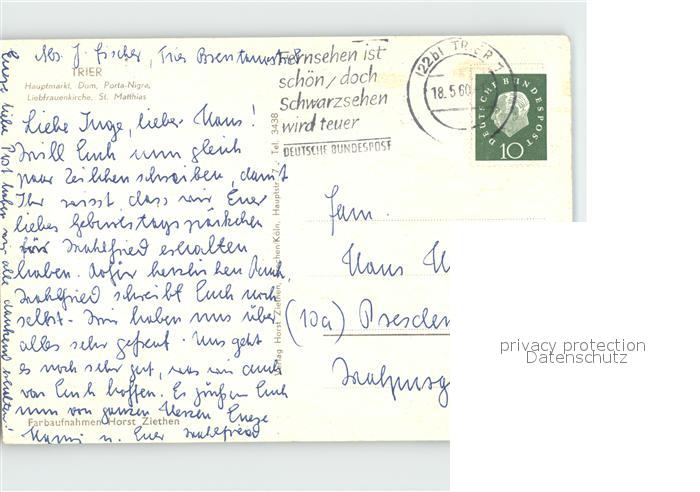 Abs. J. Fischer, Trier
TRIER
Hauptmarkt, Dom, Porta-Nigra,
Liebfrauenkirche, St. Matthias
Liebe Inge, lieber Klaus!
Will Euch nun gleich
paar Zeilchen schreiben, damit
Ihr wisst, dass wir Euer
liebes Geburtstagspäckchen
für erhalten
haben. Dafür herzlichen Dank.
schreibt Euch noch
selbst. Wir haben uns über
alles sehr gefreut. Uns geht
es noch sehr gut, was wir auch
von Euch hoffen. Es grüßen Euch
nun von ganzem Herzen Eure
Mutti u. Euer
Farbaufnahmen Horst Ziethen
Eure liebe Post haben wir alle dankend erhalten!
Verlag Horst Ziethen, Köln, Hauptstr. Tel. 3438
Fernsehen ist
schön, doch
Schwarzsehen
wird teuer
DEUTSCHE BUNDESPOST
(22b) TRIER
18.5.60
DEUTSCHE BUNDESPOST
10
Fam.
Klaus
(10a) Dresden
privacy protection
Datenschutz